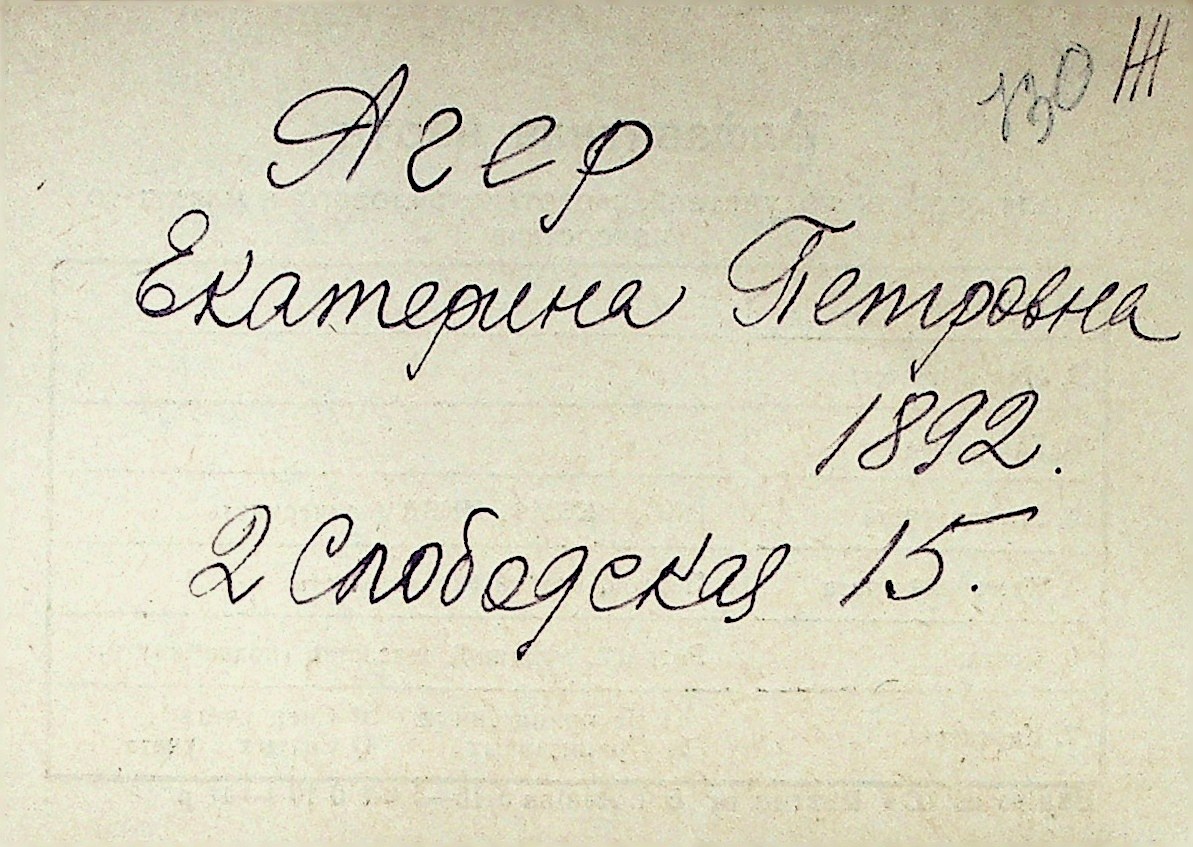 130 Ж
Агер
Екатерина Петровна
1892.
2 Слободская 15.